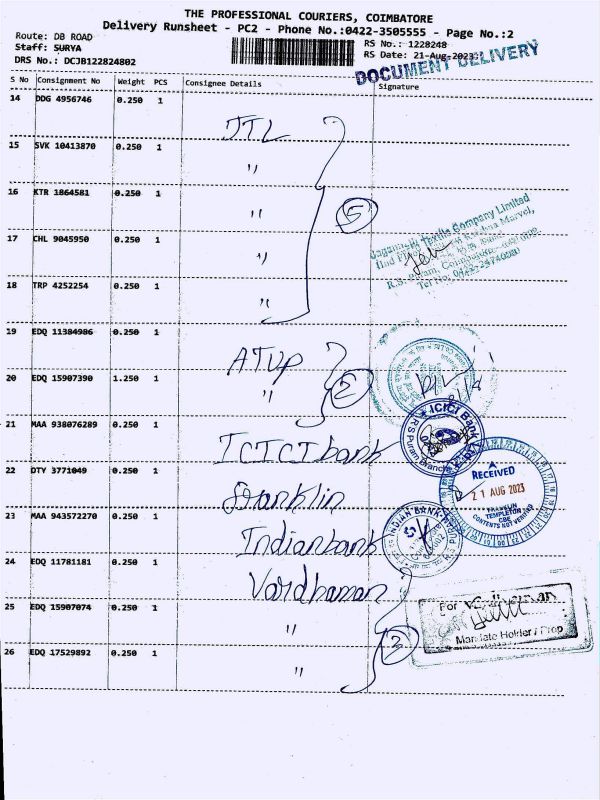 THE PROFESSIONAL COURIERS, COIMBATORE
Delivery Runsheet - PC2 - Phone No.:0422-3505555 - Page No.:2
Route: DB ROAD
Staff: SURYA
DRS No.: DCJB122824802
RS No.: 1228248
RS Date: 21-Aug-2023
DOCUMENT DELIVERY
S No Consignment No Weight PCS Consignee Details Signature
14 DDG 4956746 0.250 1
JTL
15 SVK 10413870 0.250 1
"
16 KTR 1864581 0.250 1
" 5
17 CHL 9045950 0.250 1
"
Jagannath Textile Company Limited
18 TRP 4252254 0.250 1
"
19 EDQ 11384986 0.250 1
ATUP
20 EDQ 15907390 1.250 1
" 2
21 MAA 938076289 0.250 1
ICICI bank
ICICI Bank
R S Puram Branch
22 DTY 3771049 0.250 1
Franklin
RECEIVED
21 AUG 2023
FRANKLIN
TEMPLETON
CBE
CONTENTS NOT VERIFIED
23 MAA 943572270 0.250 1
Indianbank
INDIAN BANK
24 EDQ 11781181 0.250 1
Vardhaman
25 EDQ 15907074 0.250 1
"
For
Mandate Holder / Prop
26 EDQ 17529892 0.250 1
" 3